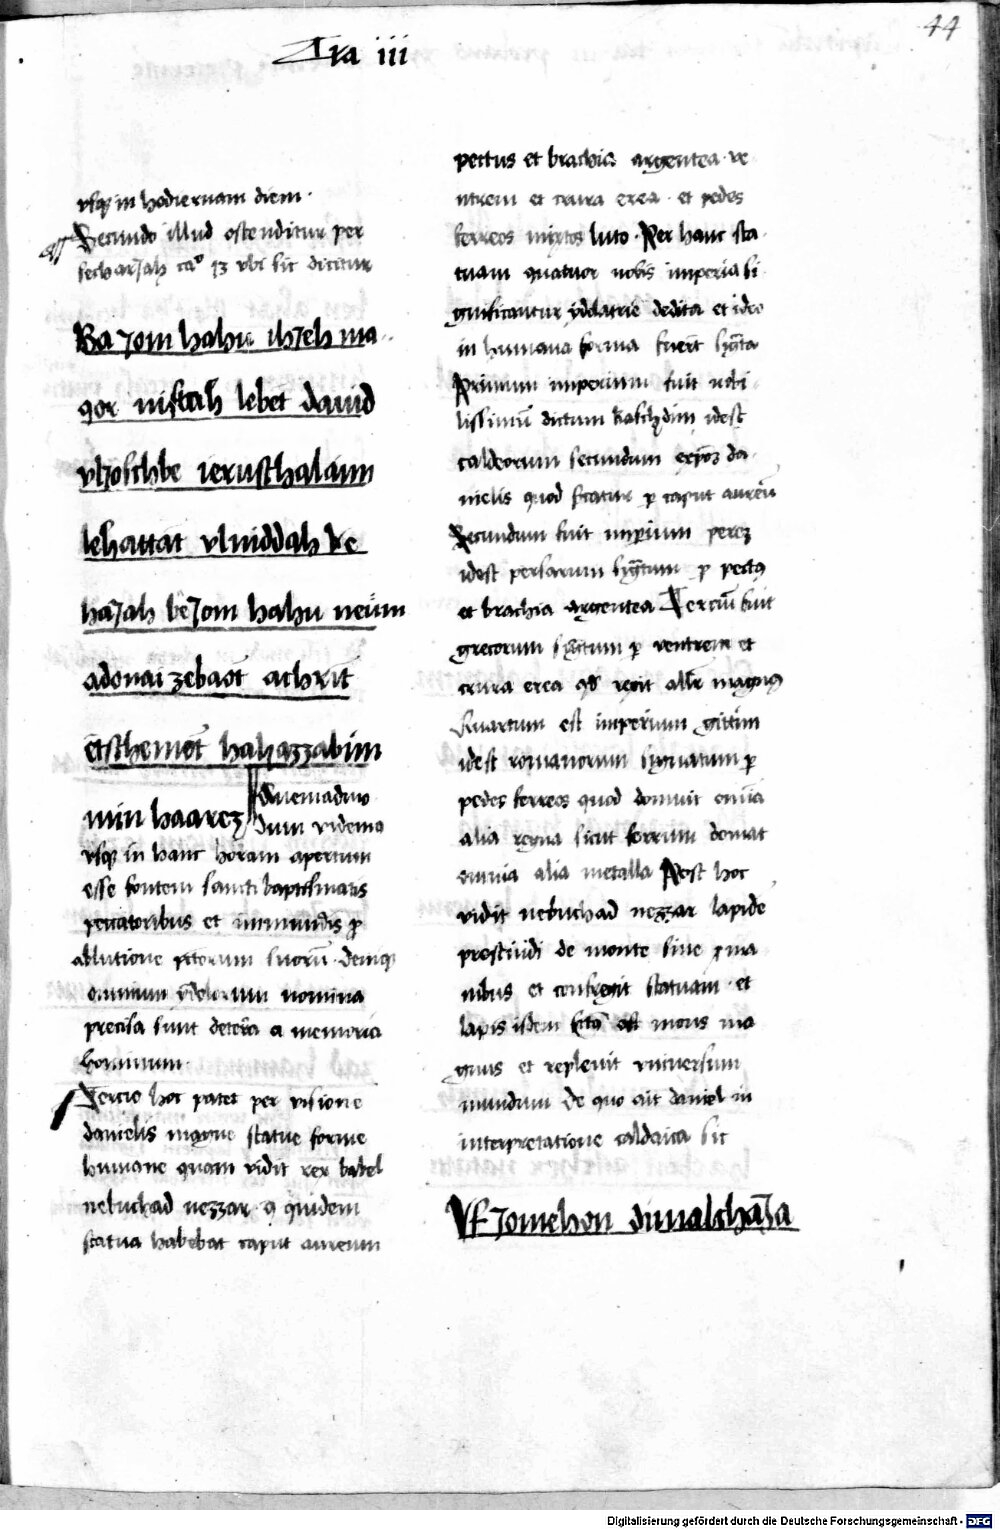 44
Tra iii
vsque in hodiernam diem.
Secundo illud ostenditur per
secharJah ca° 13 vbi sic dicitur
Ba Jom hahu ihJeh ma
qor niftah lebet dauid
vlJoschbe ierusthalaim
lehattat vlniddah Ve
haJah beJom hahu neum
adonai zebaot achrit
etschemot hahazzabim
min haarez Quemadmo
dum videmus
vsque in hanc horam apertum
esse fontem sancti baptismatis
peccatoribus et immundis pro
ablutione peccatorum suorum. denique
omnium ydolorum nomina
precisa sunt deleta a memoria
hominum.
Tercio hoc patet per visione
danielis magne statue forme
humane quam vidit rex babel
nebuchad nezzar q quidem
statua habebat caput aureum
pectus et brachia argentea. ve
ntrem et crura erea. et pedes
ferreos mixtos luto. Per hanc sta
tuam quatuor nobis imperia si
gnificantur ydolatrie dedita et ideo
in humana forma fuerunt signata
Primum imperium fuit nobi
lissimum dictum kaschdim idest
caldeorum secundum expone da
nielis quod signatur per caput aureum
Secundum fuit imperium perez
idest persarum signatum per pectus
et brachia argentea Tercium fuit
grecorum signatum per ventrem et
crura erea quod rexit allexander magnus
Quartum est imperium gittim
idest romanorum signatum per
pedes ferreos quod domuit omnia
alia regna sicut ferrum domat
omnia alia metalla Post hoc
vidit nebuchad nezzar lapide
prescindi de monte sine ma
nibus et confregit statuam. et
lapis isdem factus est mons ma
gnus et repleuit vniuersum
mundum De quo ait daniel in
interpretatione caldaica sic
Vf Jomehon dimalchaJa
Digitalisierung gefördert durch die Deutsche Forschungsgemeinschaft - DFG